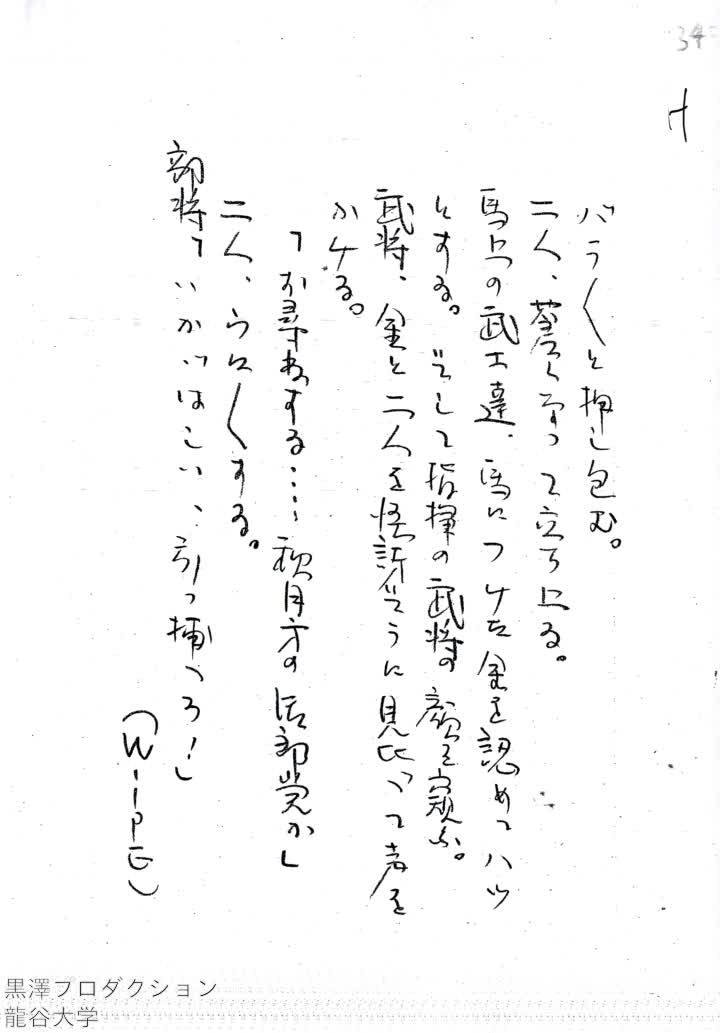 34
け
バラ〱と押し包む。
二人、蒼くなって立ち上る。
馬上の武士達、馬につけた金を認めてハッ
とする。そして指揮の武将の顔を窺ふ。
武将、金と二人を怪訝そうに見比べて声を
かける。
「お尋ねする……秋月方の残党か」
二人、うに〱する。
部将「いかゞはしい、引っ捕へろ!」
(WIPE)
黒澤プロダクション
龍谷大学